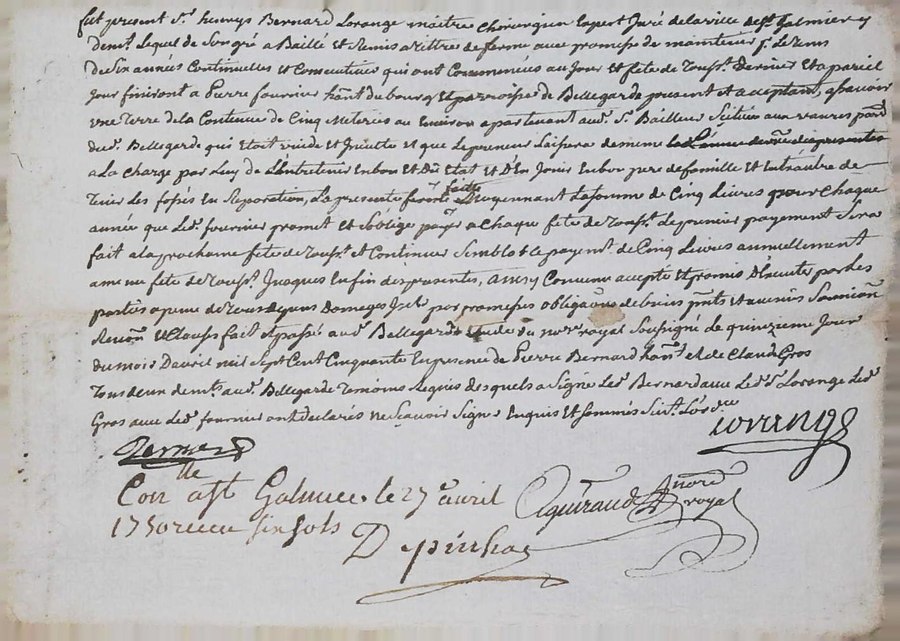 fut present Sr. henrys Bernard Lorange maitre Chirurgien Expert Juré de la ville de St. Galmier y
demt. Lequel de Son gré a Baillé et Remis a tittres de ferme avec promesse de maintenir p. Le tems
de Six années Continuelles et Consecutives qui ont Commencées au Jour et fete de Touss. Dernier Et a pareil
Jour finiront a Pierre fournier hant. du bourg et parroisse de Bellegarde present et aceptant, asçavoir
une Terre de la Contenue de Cinq Meterées ou Environ apartenant aud. Sr. Bailleur Scituée aux vaures
dud. Bellegarde qui Etait vuide et et que Lepreneur Laissera de meme
a La Charge par Luy de L'entretenir En bon et Du Etat et D'En Jouir En bon pere de famille et entr'autre de
Tenir Les fossés En Reparation, La presente ferme faitte Moyennant La somme de Cinq Livres pour Chaque
année que Led. fournier promet et S'oblige payer a Chaque fete de Touss. Le premier payement Sera
fait a la prochaine fete de Touss. et Continuer Semblable payent. de Cinq Livres annuellement
a meme fete de Touss. Jusques En fin des presentes, ainsy Convenu accepté Et promis D'Executer par Les
parties a peine de Tous depens Domages Jnts. par promesses obligaons. de biens pnts. et avenirs Soumiçon
Renon. et Clauses fait et passé aud. Bellegarde Etude du nore. royal Soussigné Le quinzieme Jour
du mois D'avril mil Sept Cent Cinquante En presence de Pierre Bernard hant. et de Claude Gros
Tous deux demts. aud. Bellegarde Temoins Requis desquels a Signé Led. Bernard avec Led. Sr. Lorange Led.
Gros avec Led. fournier ont declarés ne Sçavoir Signer Enquis Et Sommés Suivt. L'ordce
Lorange
Bernard
Conlle a St Galmier le 27 avril
1750 receu six sols
nore royal